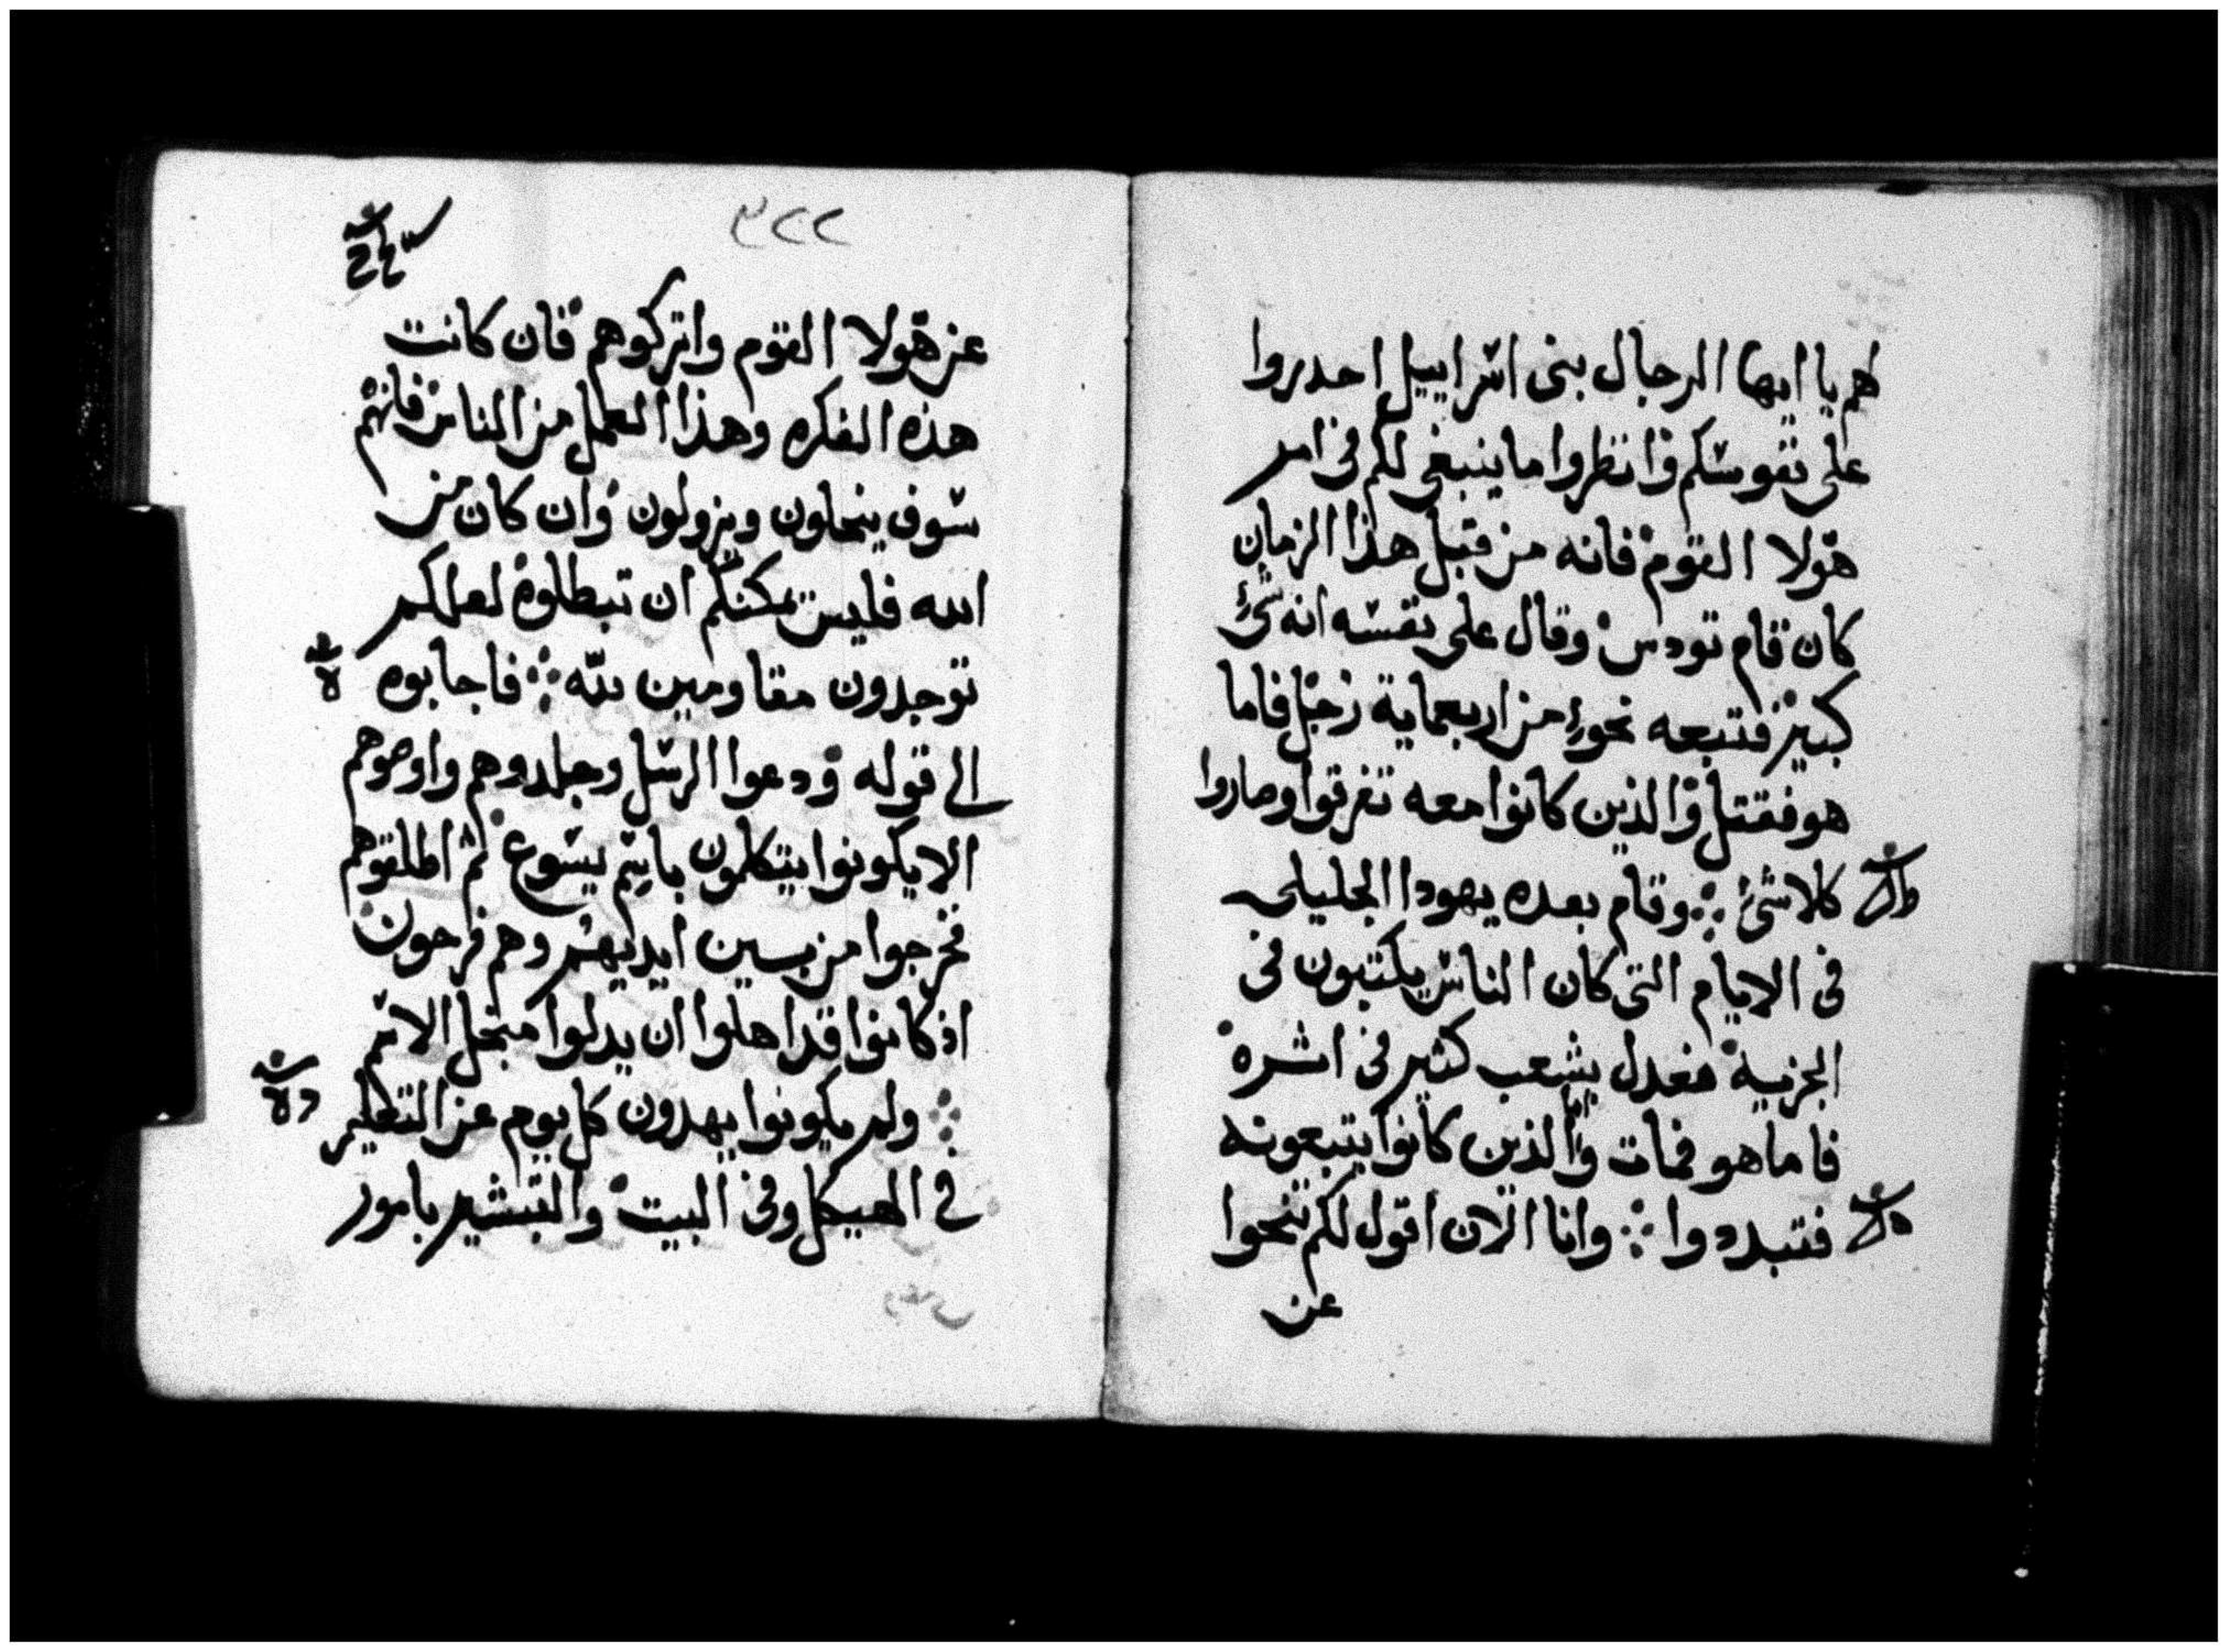 لهم يا ايها الرجال بنى اسراييل احدروا
على نفوسكم وانظروا ما ينبغى لكم فى امر
هولا القوم فانه من قبل هذا الزمان
كان قام تودس وقال على نفسه انه شئ
كبير فتبعه نحو من اربعماية رجل فاما
هو فقتل والذين كانوا معه تفرقوا وصاروا
كلاشئ وقام بعده يهودا الجليلى
فى الايام التى كان الناس يكتتبون فى
الجزية فعدل بشعب كثير فى اثره
فاما هو فمات والذين كانوا يتبعونه
فتبددوا وانا الان اقول لكم تنحوا
عن
٣٢٢
عن هولا القوم واتركوهم فان كانت
هذه الفكره وهذا العمل من الناس فانهم
سوف ينحلون ويزولون وان كان من
الله فليس يمكنكم ان تبطلوه لعلكم
توجدون مقاومين لله فاجابوه
الى قوله ودعوا الرسل وجلدوهم واوصوهم
الا يكونوا يتكلمون باسم يسوع ثم اطلقوهم
فخرجوا من بين ايديهم وهم فرحون
اذ كانوا قد اهلوا ان يدلوا من اجل الاسم
ولم يكونوا يهدون كل يوم عن التعليم
فى الهيكل وفى البيت والتبشير بامور